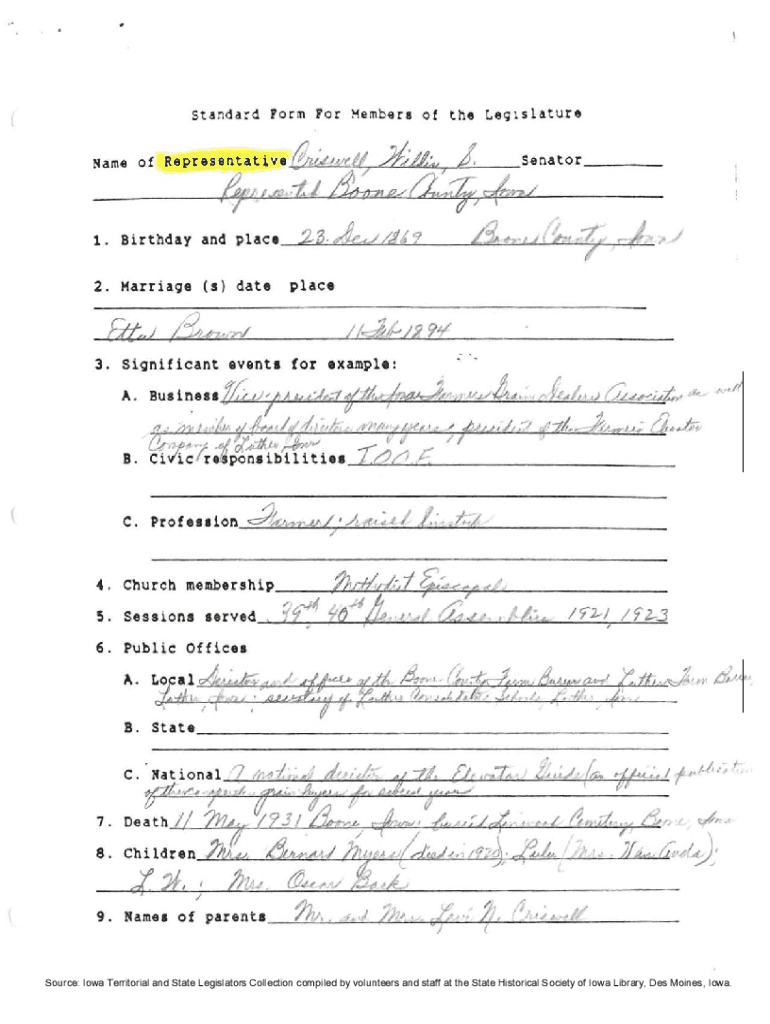 Standard Form For Members of the Legislature
Name of Representative Criswell, Willis, S. Senator
Represented Boone County, Iowa
1. Birthday and place 23 Dec 1869 Boone County, Iowa
2. Marriage (s) date place
Etta Brown 11 Feb 1894
3. Significant events for example:
A. Business Vice-president of the Iowa Farmers Grain Dealers Association as well
as member of board of directors many years; president of the Farmers Elevator
Company of Luther, Iowa
B. Civic responsibilities I.O.O.F.
C. Profession Farmer; raised livestock
4. Church membership Methodist Episcopal
5. Sessions served 39th, 40th General Assemblies 1921, 1923
6. Public Offices
A. Local Director and officer of the Boone County Farm Bureau and Luther Farm Bureau,
Luther, Iowa; secretary of Luther Consolidated Schools, Luther, Iowa
B. State
C. National A national director of the Elevator Guide (an official publication
of the grain buyers for several years
7. Death 11 May 1931 Boone, Iowa; buried Linwood Cemetery, Boone, Iowa
8. Children Mrs. Bernard Myers (died in 1920); Lula (Mrs. );
L. W.; Mrs. Oscar
9. Names of parents Mr. and Mrs. Levi N. Criswell
Source: Iowa Territorial and State Legislators Collection compiled by volunteers and staff at the State Historical Society of Iowa Library, Des Moines, Iowa.